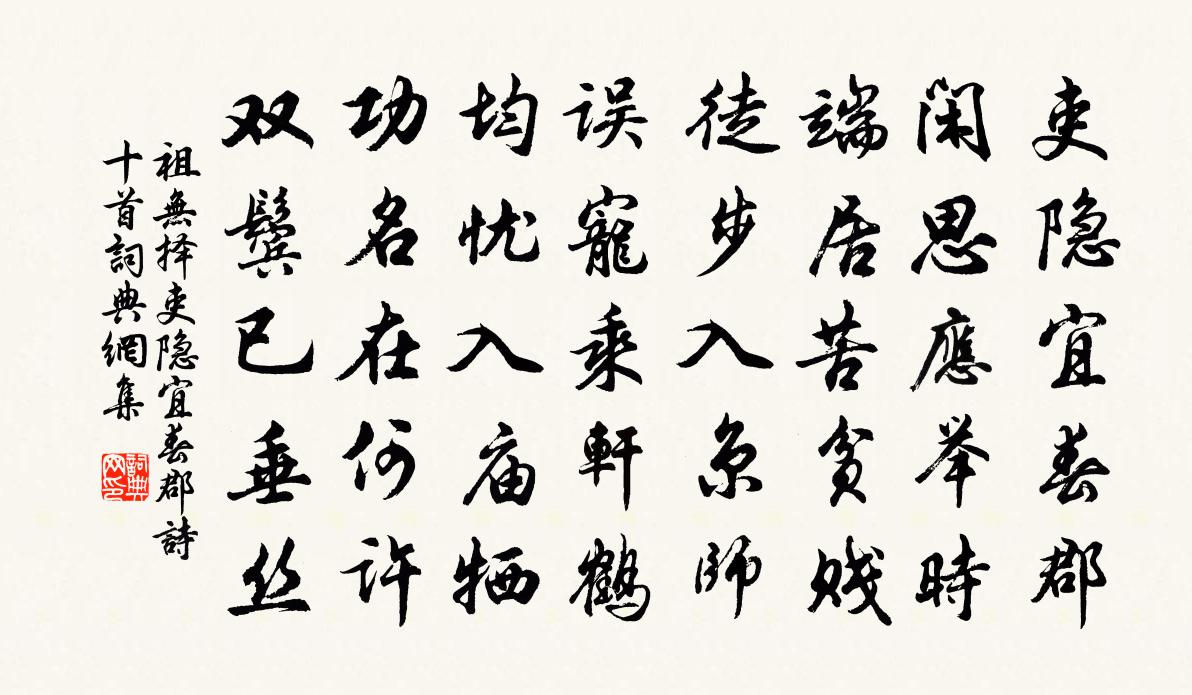 吏隐宜春郡
闲思應举時
端居苦贫贱
徒步入京師
误寵乘軒鶴
均忧入庙牺
功名在何许
双鬓已垂丝
祖無择吏隐宜春郡詩
十首詞典網集
詞典
网印